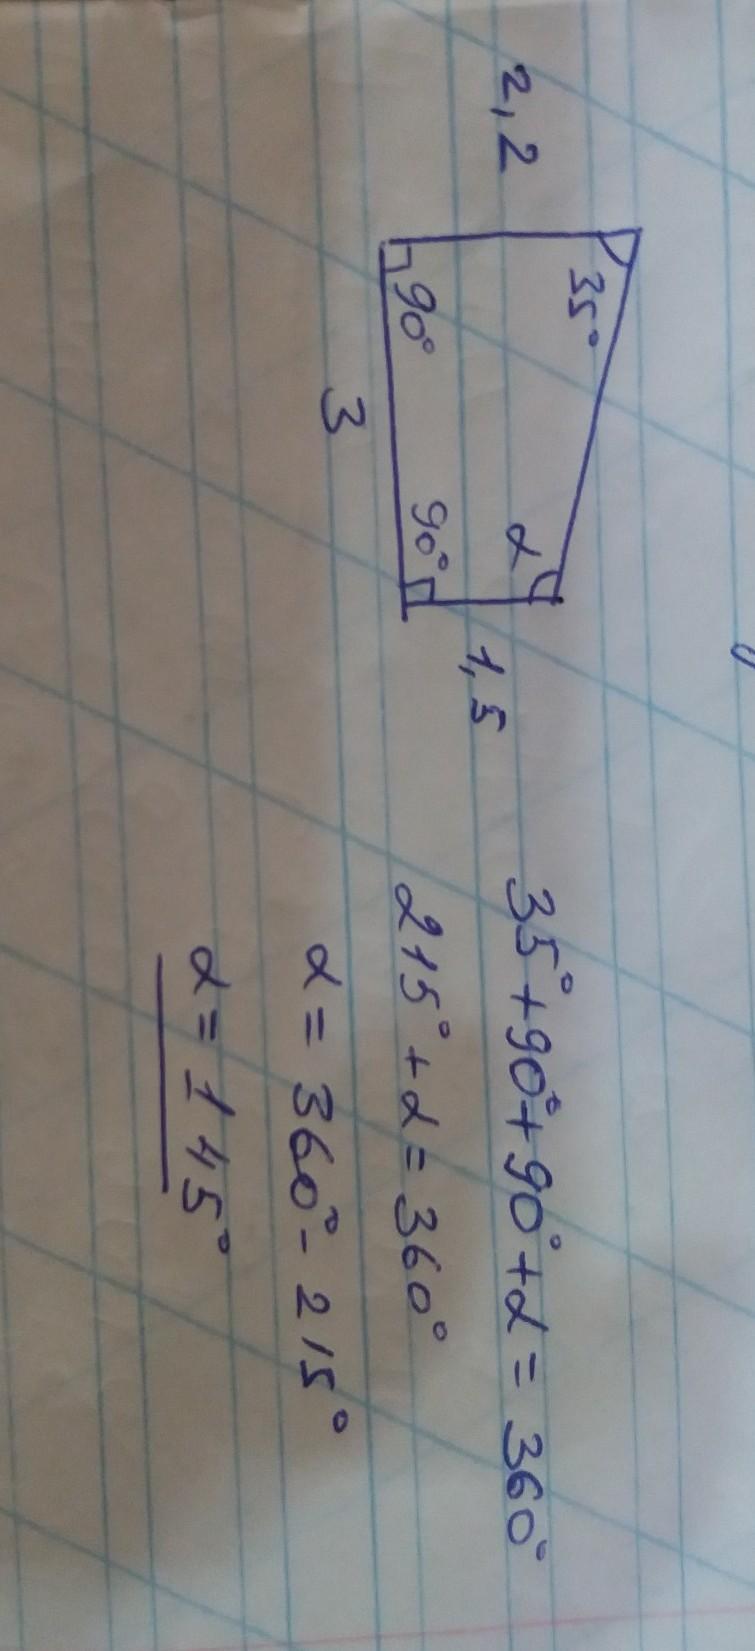 2,2
35°
α
90°
90°
3
1,5
35°+90°+90°+α=360°
215°+α=360°
α=360°-215°
α=145°